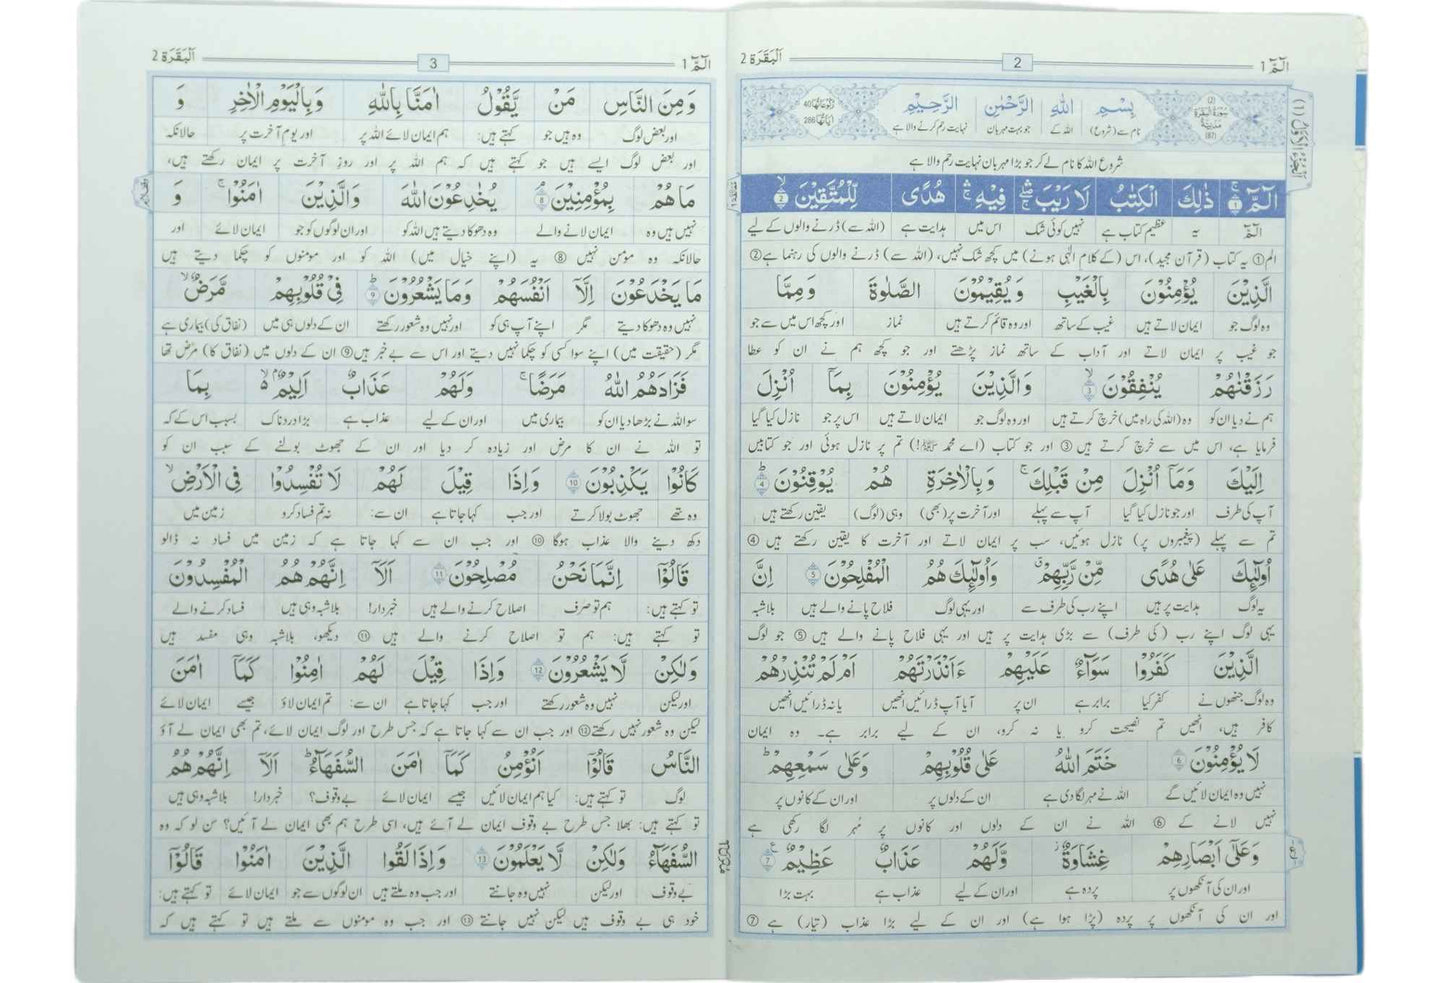 الٓمّٓ 1
2
اَلْبَقَرَة 2
سُوْرَةُ الْبَقَرَةِ مَدَنِيَّةٌ
(87)
بِسْمِ اللّٰهِ الرَّحْمٰنِ الرَّحِيْمِ
اٰيَاتُهَا 286
رُكُوْعَاتُهَا 40
نام سے (شروع) اللہ کے جو بہت مہربان نہایت رحم کرنے والا ہے
شروع اللہ کا نام لے کر جو بڑا مہربان نہایت رحم والا ہے
الٓمّٓ ۚ 1 ذٰلِكَ الْكِتٰبُ لَا رَيْبَ ۛۖ فِيْهِ ۛۚ هُدًى لِّلْمُتَّقِيْنَ ۙ 2
الٓمّٓ یہ عظیم کتاب ہے نہیں کوئی شک اس میں ہدایت ہے (اللہ سے) ڈرنے والوں کے لیے
الم ① یہ کتاب (قرآن مجید)، اس (کے کلام الٰہی ہونے) میں کچھ شک نہیں، (اللہ سے) ڈرنے والوں کی رہنما ہے ②
الَّذِيْنَ يُؤْمِنُوْنَ بِالْغَيْبِ وَ يُقِيْمُوْنَ الصَّلٰوةَ وَ مِمَّا
وہ لوگ جو ایمان لاتے ہیں غیب کے ساتھ اور وہ قائم کرتے ہیں نماز اور کچھ اس میں سے جو
جو غیب پر ایمان لاتے اور آداب کے ساتھ نماز پڑھتے اور جو کچھ ہم نے ان کو عطا
رَزَقْنٰهُمْ يُنْفِقُوْنَ ۙ 3 وَ الَّذِيْنَ يُؤْمِنُوْنَ بِمَآ اُنْزِلَ
ہم نے دیا ان کو وہ (اللہ کی راہ میں) خرچ کرتے ہیں اور وہ لوگ جو ایمان لاتے ہیں اس پر جو نازل کیا گیا
فرمایا ہے، اس میں سے خرچ کرتے ہیں ③ اور جو کتاب (اے محمد ﷺ!) تم پر نازل ہوئی اور جو کتابیں
اِلَيْكَ وَمَآ اُنْزِلَ مِنْ قَبْلِكَ ۚ وَ بِالْاٰخِرَةِ هُمْ يُوْقِنُوْنَ ۭ 4
آپ کی طرف اور جو نازل کیا گیا آپ سے پہلے اور آخرت پر (بھی) وہی (لوگ) یقین رکھتے ہیں
تم سے پہلے (پیغمبروں پر) نازل ہوئیں، سب پر ایمان لاتے اور آخرت کا یقین رکھتے ہیں ④
اُولٰٓئِكَ عَلٰى هُدًى مِّنْ رَّبِّهِمْ ۤ وَاُولٰٓئِكَ هُمُ الْمُفْلِحُوْنَ 5 اِنَّ
یہ لوگ ہدایت پر ہیں اپنے رب کی طرف سے اور یہی لوگ فلاح پانے والے ہیں بلاشبہ
یہی لوگ اپنے رب (کی طرف) سے بڑی ہدایت پر ہیں اور یہی فلاح پانے والے ہیں ⑤ جو لوگ
الَّذِيْنَ كَفَرُوْا سَوَآءٌ عَلَيْهِمْ ءَاَنْذَرْتَهُمْ اَمْ لَمْ تُنْذِرْهُمْ
وہ لوگ جنھوں نے کفر کیا برابر ہے ان پر آیا آپ ڈرائیں انھیں یا نہ ڈرائیں انھیں
کافر ہیں، انھیں تم نصیحت کرو یا نہ کرو، ان کے لیے برابر ہے۔ وہ ایمان
لَا يُؤْمِنُوْنَ 6 خَتَمَ اللّٰهُ عَلٰى قُلُوْبِهِمْ وَعَلٰى سَمْعِهِمْ ۭ
نہیں وہ ایمان لائیں گے اللہ نے مہر لگا دی ہے ان کے دلوں پر اور ان کے کانوں پر
نہیں لانے کے ⑥ اللہ نے ان کے دلوں اور کانوں پر مہر لگا رکھی ہے
وَعَلٰٓى اَبْصَارِهِمْ غِشَاوَةٌ ۡ وَّلَهُمْ عَذَابٌ عَظِيْمٌ 7
اور ان کی آنکھوں پر پردہ ہے اور ان کے لیے عذاب ہے بہت بڑا
اور ان کی آنکھوں پر پردہ (پڑا ہوا ہے) اور ان کے لیے بڑا عذاب (تیار) ہے ⑦
الٓمّٓ 1
3
اَلْبَقَرَة 2
وَ مِنَ النَّاسِ مَنْ يَّقُوْلُ اٰمَنَّا بِاللّٰهِ وَ بِالْيَوْمِ الْاٰخِرِ وَ
اور بعض لوگ وہ ہیں جو کہتے ہیں: ہم ایمان لائے اللہ پر اور یوم آخرت پر حالانکہ
اور بعض لوگ ایسے ہیں جو کہتے ہیں کہ ہم اللہ پر اور روز آخرت پر ایمان رکھتے ہیں،
مَا هُمْ بِمُؤْمِنِيْنَ ۘ 8 يُخٰدِعُوْنَ اللّٰهَ وَالَّذِيْنَ اٰمَنُوْا ۚ وَ
نہیں ہیں وہ ایمان لانے والے وہ دھوکا دیتے ہیں اللہ کو اور ان لوگوں کو جو ایمان لائے اور
حالانکہ وہ مؤمن نہیں ⑧ یہ (اپنے خیال میں) اللہ کو اور مومنوں کو چکما دیتے ہیں
مَا يَخْدَعُوْنَ اِلَّآ اَنْفُسَهُمْ وَمَا يَشْعُرُوْنَ ۭ 9 فِيْ قُلُوْبِهِمْ مَّرَضٌ ۙ
نہیں وہ دھوکا دیتے مگر اپنے آپ ہی کو اور نہیں وہ شعور رکھتے ان کے دلوں ہی میں (نفاق کی) بیماری ہے
مگر (حقیقت میں) اپنے سوا کسی کو چکما نہیں دیتے اور اس سے بے خبر ہیں ⑨ ان کے دلوں میں (نفاق کا) مرض تھا
فَزَادَهُمُ اللّٰهُ مَرَضًا ۚ وَلَهُمْ عَذَابٌ اَلِيْمٌ ۢ ۙ بِمَا
سو اللہ نے بڑھا دیا ان کو بیماری میں اور ان کے لیے عذاب ہے بڑا دردناک بسبب اس کے کہ
تو اللہ نے ان کا مرض اور زیادہ کر دیا اور ان کے جھوٹ بولنے کے سبب ان کو
كَانُوْا يَكْذِبُوْنَ 10 وَ اِذَا قِيْلَ لَهُمْ لَا تُفْسِدُوْا فِي الْاَرْضِ ۙ
وہ تھے جھوٹ بولا کرتے اور جب کہا جاتا ہے ان سے: نہ تم فساد کرو زمین میں
دکھ دینے والا عذاب ہوگا ⑩ اور جب ان سے کہا جاتا ہے کہ زمین میں فساد نہ ڈالو
قَالُوْٓا اِنَّمَا نَحْنُ مُصْلِحُوْنَ 11 اَلَآ اِنَّهُمْ هُمُ الْمُفْسِدُوْنَ
تو کہتے ہیں: ہم تو صرف اصلاح کرنے والے ہیں خبردار! بلاشبہ وہی ہیں فساد کرنے والے
تو کہتے ہیں: ہم تو اصلاح کرنے والے ہیں ⑪ دیکھو، بلاشبہ وہی مفسد ہیں
وَلٰكِنْ لَّا يَشْعُرُوْنَ 12 وَ اِذَا قِيْلَ لَهُمْ اٰمِنُوْا كَمَآ اٰمَنَ
اور لیکن نہیں وہ شعور رکھتے اور جب کہا جاتا ہے ان سے: تم ایمان لاؤ جیسے ایمان لائے
لیکن وہ شعور نہیں رکھتے ⑫ اور جب ان سے کہا جاتا ہے کہ جس طرح اور لوگ ایمان لائے، تم بھی ایمان لے آؤ
النَّاسُ قَالُوْٓا اَنُؤْمِنُ كَمَآ اٰمَنَ السُّفَهَآءُ ۭ اَلَآ اِنَّهُمْ هُمُ
لوگ تو کہتے ہیں: کیا ہم ایمان لائیں جیسے ایمان لائے بے وقوف؟ خبردار! بلاشبہ وہی ہیں
تو کہتے ہیں: بھلا جس طرح بے وقوف ایمان لے آئے ہیں، اسی طرح ہم بھی ایمان لے آئیں؟ سن لو کہ وہ
السُّفَهَآءُ وَلٰكِنْ لَّا يَعْلَمُوْنَ 13 وَاِذَا لَقُوا الَّذِيْنَ اٰمَنُوْا قَالُوْٓا
بے وقوف اور لیکن نہیں وہ جانتے اور جب وہ ملتے ہیں ان لوگوں سے جو ایمان لائے تو کہتے ہیں:
خود ہی بے وقوف ہیں لیکن نہیں جانتے ⑬ اور جب وہ مومنوں سے ملتے ہیں تو کہتے ہیں کہ